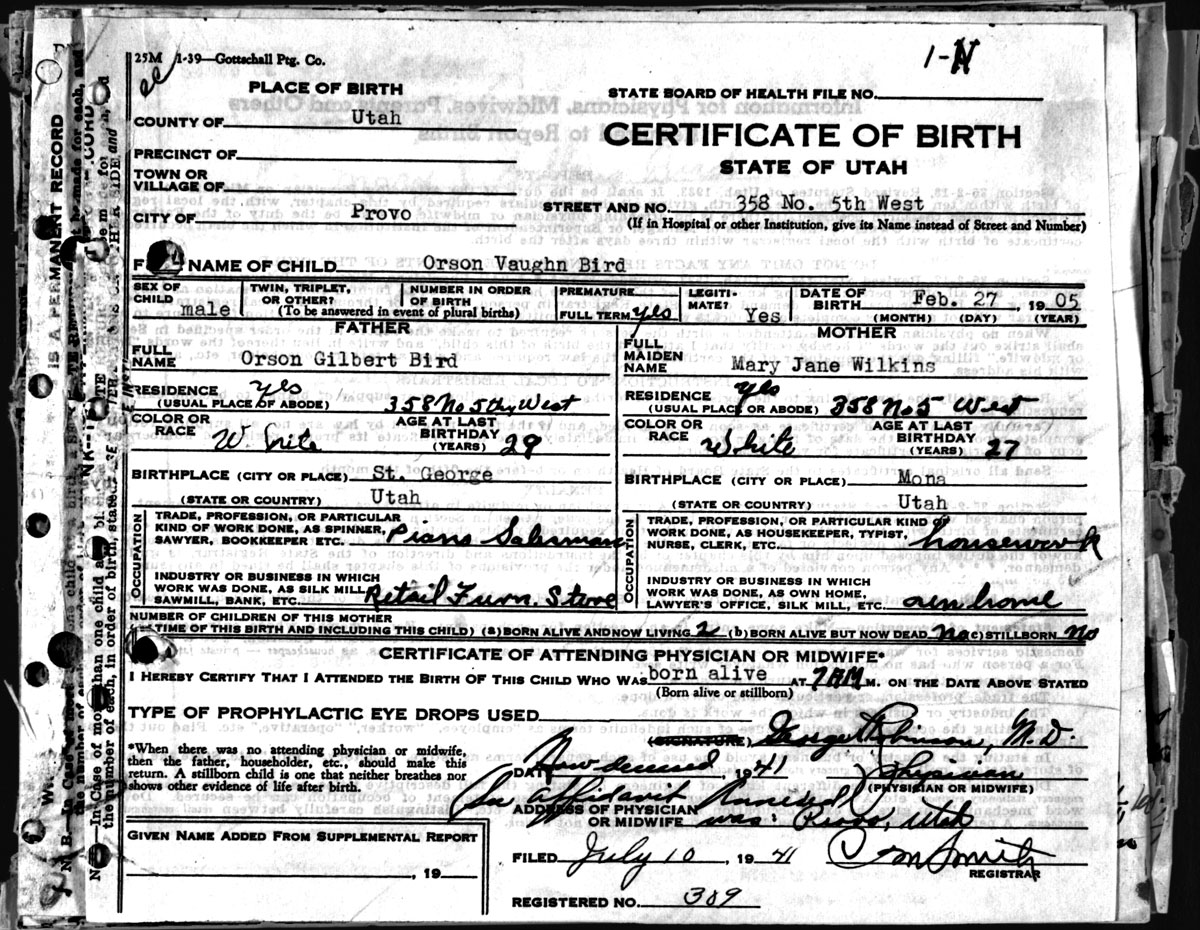 25M 1-39—Gottschall Ptg. Co.
1-N
PLACE OF BIRTH
STATE BOARD OF HEALTH FILE NO.
COUNTY OF Utah
CERTIFICATE OF BIRTH
STATE OF UTAH
PRECINCT OF
TOWN OR
VILLAGE OF
CITY OF Provo
STREET AND NO. 358 No. 5th West
(If in Hospital or other Institution, give its Name instead of Street and Number)
NAME OF CHILD Orson Vaughn Bird
SEX OF CHILD male
TWIN, TRIPLET, OR OTHER?
NUMBER IN ORDER OF BIRTH
(To be answered in event of plural births)
PREMATURE
FULL TERM yes
LEGITIMATE? Yes
DATE OF BIRTH Feb. 27, 1905
(MONTH) (DAY) (YEAR)
FATHER
FULL NAME Orson Gilbert Bird
RESIDENCE yes
(USUAL PLACE OF ABODE) 358 No 5th West
COLOR OR RACE White
AGE AT LAST BIRTHDAY (YEARS) 29
BIRTHPLACE (CITY OR PLACE) St. George
(STATE OR COUNTRY) Utah
OCCUPATION
TRADE, PROFESSION, OR PARTICULAR
KIND OF WORK DONE, AS SPINNER,
SAWYER, BOOKKEEPER ETC. Piano Salesman
INDUSTRY OR BUSINESS IN WHICH
WORK WAS DONE, AS SILK MILL,
SAWMILL, BANK, ETC. Retail Furn. Store
MOTHER
FULL MAIDEN NAME Mary Jane Wilkins
RESIDENCE yes
(USUAL PLACE OR ABODE) 358 No 5 West
COLOR OR RACE White
AGE AT LAST BIRTHDAY (YEARS) 27
BIRTHPLACE (CITY OR PLACE) Mona
(STATE OR COUNTRY) Utah
OCCUPATION
TRADE, PROFESSION, OR PARTICULAR KIND OF
WORK DONE, AS HOUSEKEEPER, TYPIST,
NURSE, CLERK, ETC. housework
INDUSTRY OR BUSINESS IN WHICH
WORK WAS DONE, AS OWN HOME,
LAWYER'S OFFICE, SILK MILL, ETC. own home
NUMBER OF CHILDREN OF THIS MOTHER
TIME OF THIS BIRTH AND INCLUDING THIS CHILD) (a) BORN ALIVE AND NOW LIVING 2 (b) BORN ALIVE BUT NOW DEAD No (c) STILLBORN No
CERTIFICATE OF ATTENDING PHYSICIAN OR MIDWIFE*
I HEREBY CERTIFY THAT I ATTENDED THE BIRTH OF THIS CHILD WHO WAS born alive AT 7 AM M. ON THE DATE ABOVE STATED
(Born alive or stillborn)
TYPE OF PROPHYLACTIC EYE DROPS USED
(SIGNATURE) George Robinson, M.D.
*When there was no attending physician or midwife,
then the father, householder, etc., should make this
return. A stillborn child is one that neither breathes nor
shows other evidence of life after birth.
DATE Now deceased, 1941 Physician
(PHYSICIAN OR MIDWIFE)
See affidavit Annexed
ADDRESS OF PHYSICIAN
OR MIDWIFE was: Provo, Utah
GIVEN NAME ADDED FROM SUPPLEMENTAL REPORT
, 19
FILED July 10, 1941
REGISTRAR
REGISTERED NO. 389